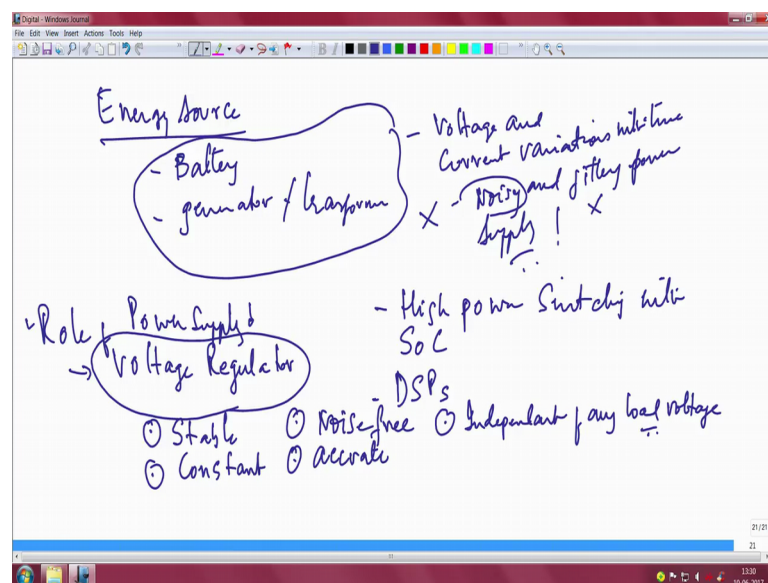 Digital - Windows Journal
File Edit View Insert Actions Tools Help
Energy Source
- Battery
- generator / transformer
- Voltage and
Current variations with time
- Noisy and jittery power
supply !
- Role of Power Supply &
→ Voltage Regulator
- High power Switching within
SoC
- DSPs
Stable
Noise free
Independant of any load voltage
Constant
accurate
21/21
21
13:30
10-06-2017